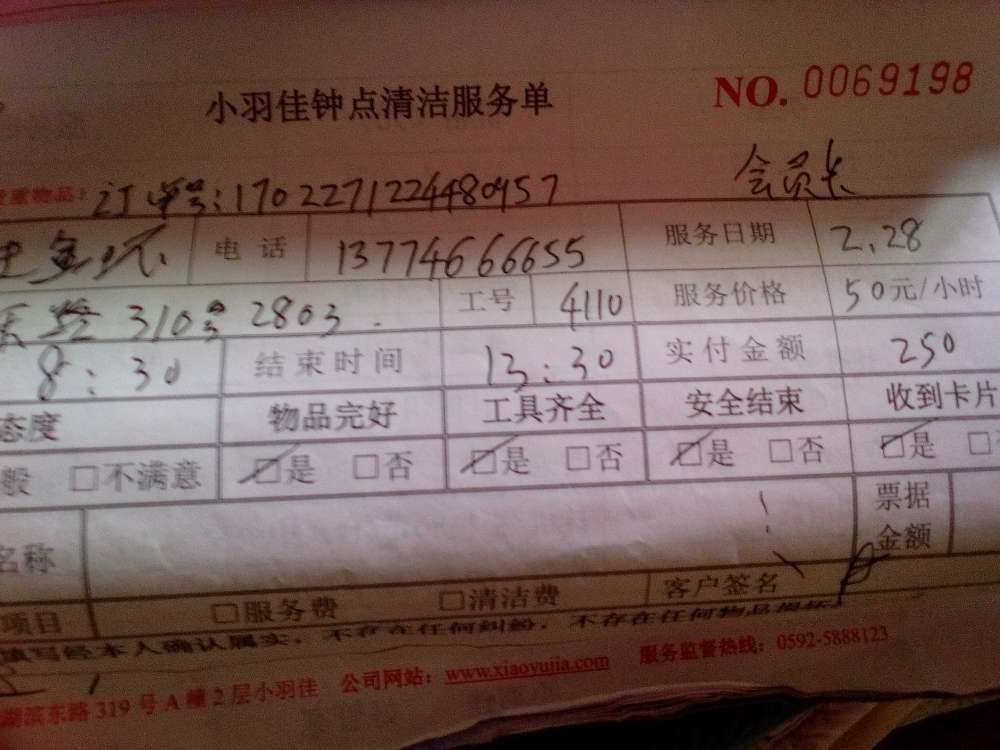 小羽佳钟点清洁服务单 NO. 0069198
贵重物品: 订单号:1702271224480957 会员卡
电话 13774666655 服务日期 2.28
310号 2803. 工号 4110 服务价格 50元/小时
8:30 结束时间 13:30 实付金额 250
态度 物品完好 工具齐全 安全结束 收到卡片
般 □不满意 ☑是 □否 ☑是 □否 ☑是 □否 ☑是
名称 票据金额
项目 □服务费 □清洁费 客户签名
填写经本人确认属实，不存在任何纠纷，不存在任何物品损坏。
湖滨东路 319 号 A 幢 2 层小羽佳 公司网站：www.xiaoyujia.com 服务监督热线：0592-5888123